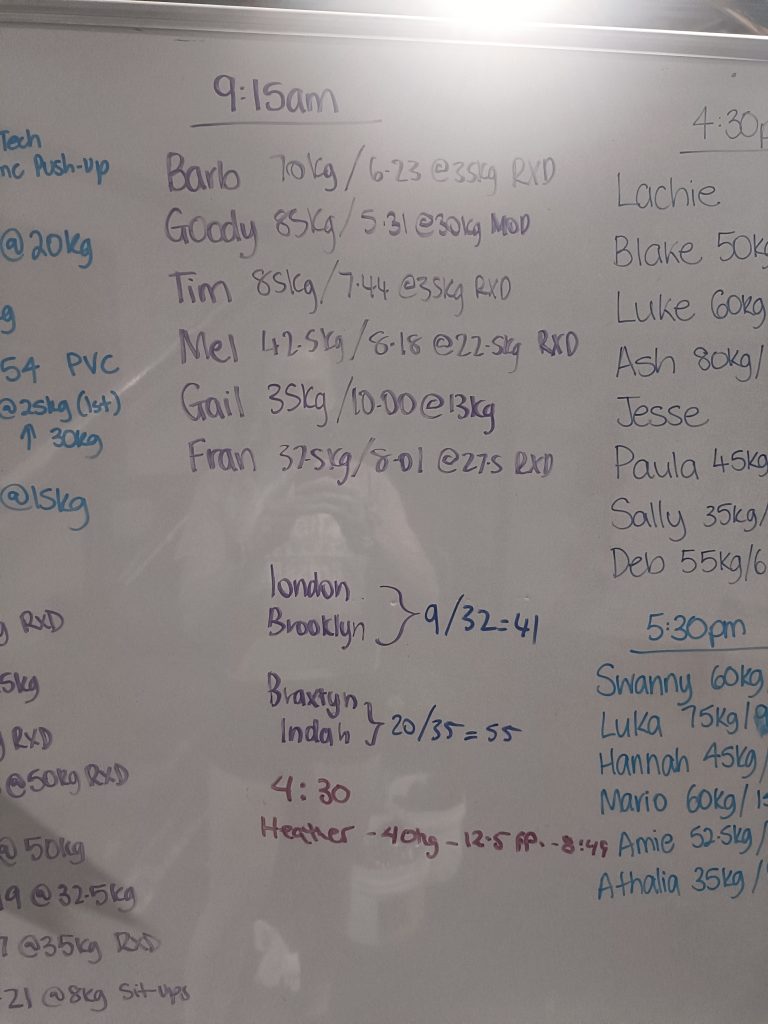 Tech
nc Push-up
@20kg
g
54 PVC
@25kg (1st)
↑ 30kg
@15kg
g RXD
5kg
g RXD
@50kg RXD
@50kg
19 @32.5kg
7 @35kg RXD
-21 @8kg Sit-ups
9:15am
Barb 70kg/6.23 @35kg RXD
Goody 85kg/5.31 @30kg MOD
Tim 85kg/7.44 @35kg RXD
Mel 42.5kg/8.18 @22.5kg RXD
Gail 35kg/10.00@13kg
Fran 37.5kg/8.01 @27.5 RXD
london
Brooklyn } 9/32=41
Braxtyn
Indah } 20/35=55
4:30
Heather - 40kg - 12.5 PP. - 8:49
4:30p
Lachie
Blake 50kg
Luke 60kg
Ash 80kg/
Jesse
Paula 45kg
Sally 35kg/
Deb 55kg/6
5:30pm
Swanny 60kg
Luka 75kg/
Hannah 45kg/
Mario 60kg/1
Amie 52.5kg/
Athalia 35kg/